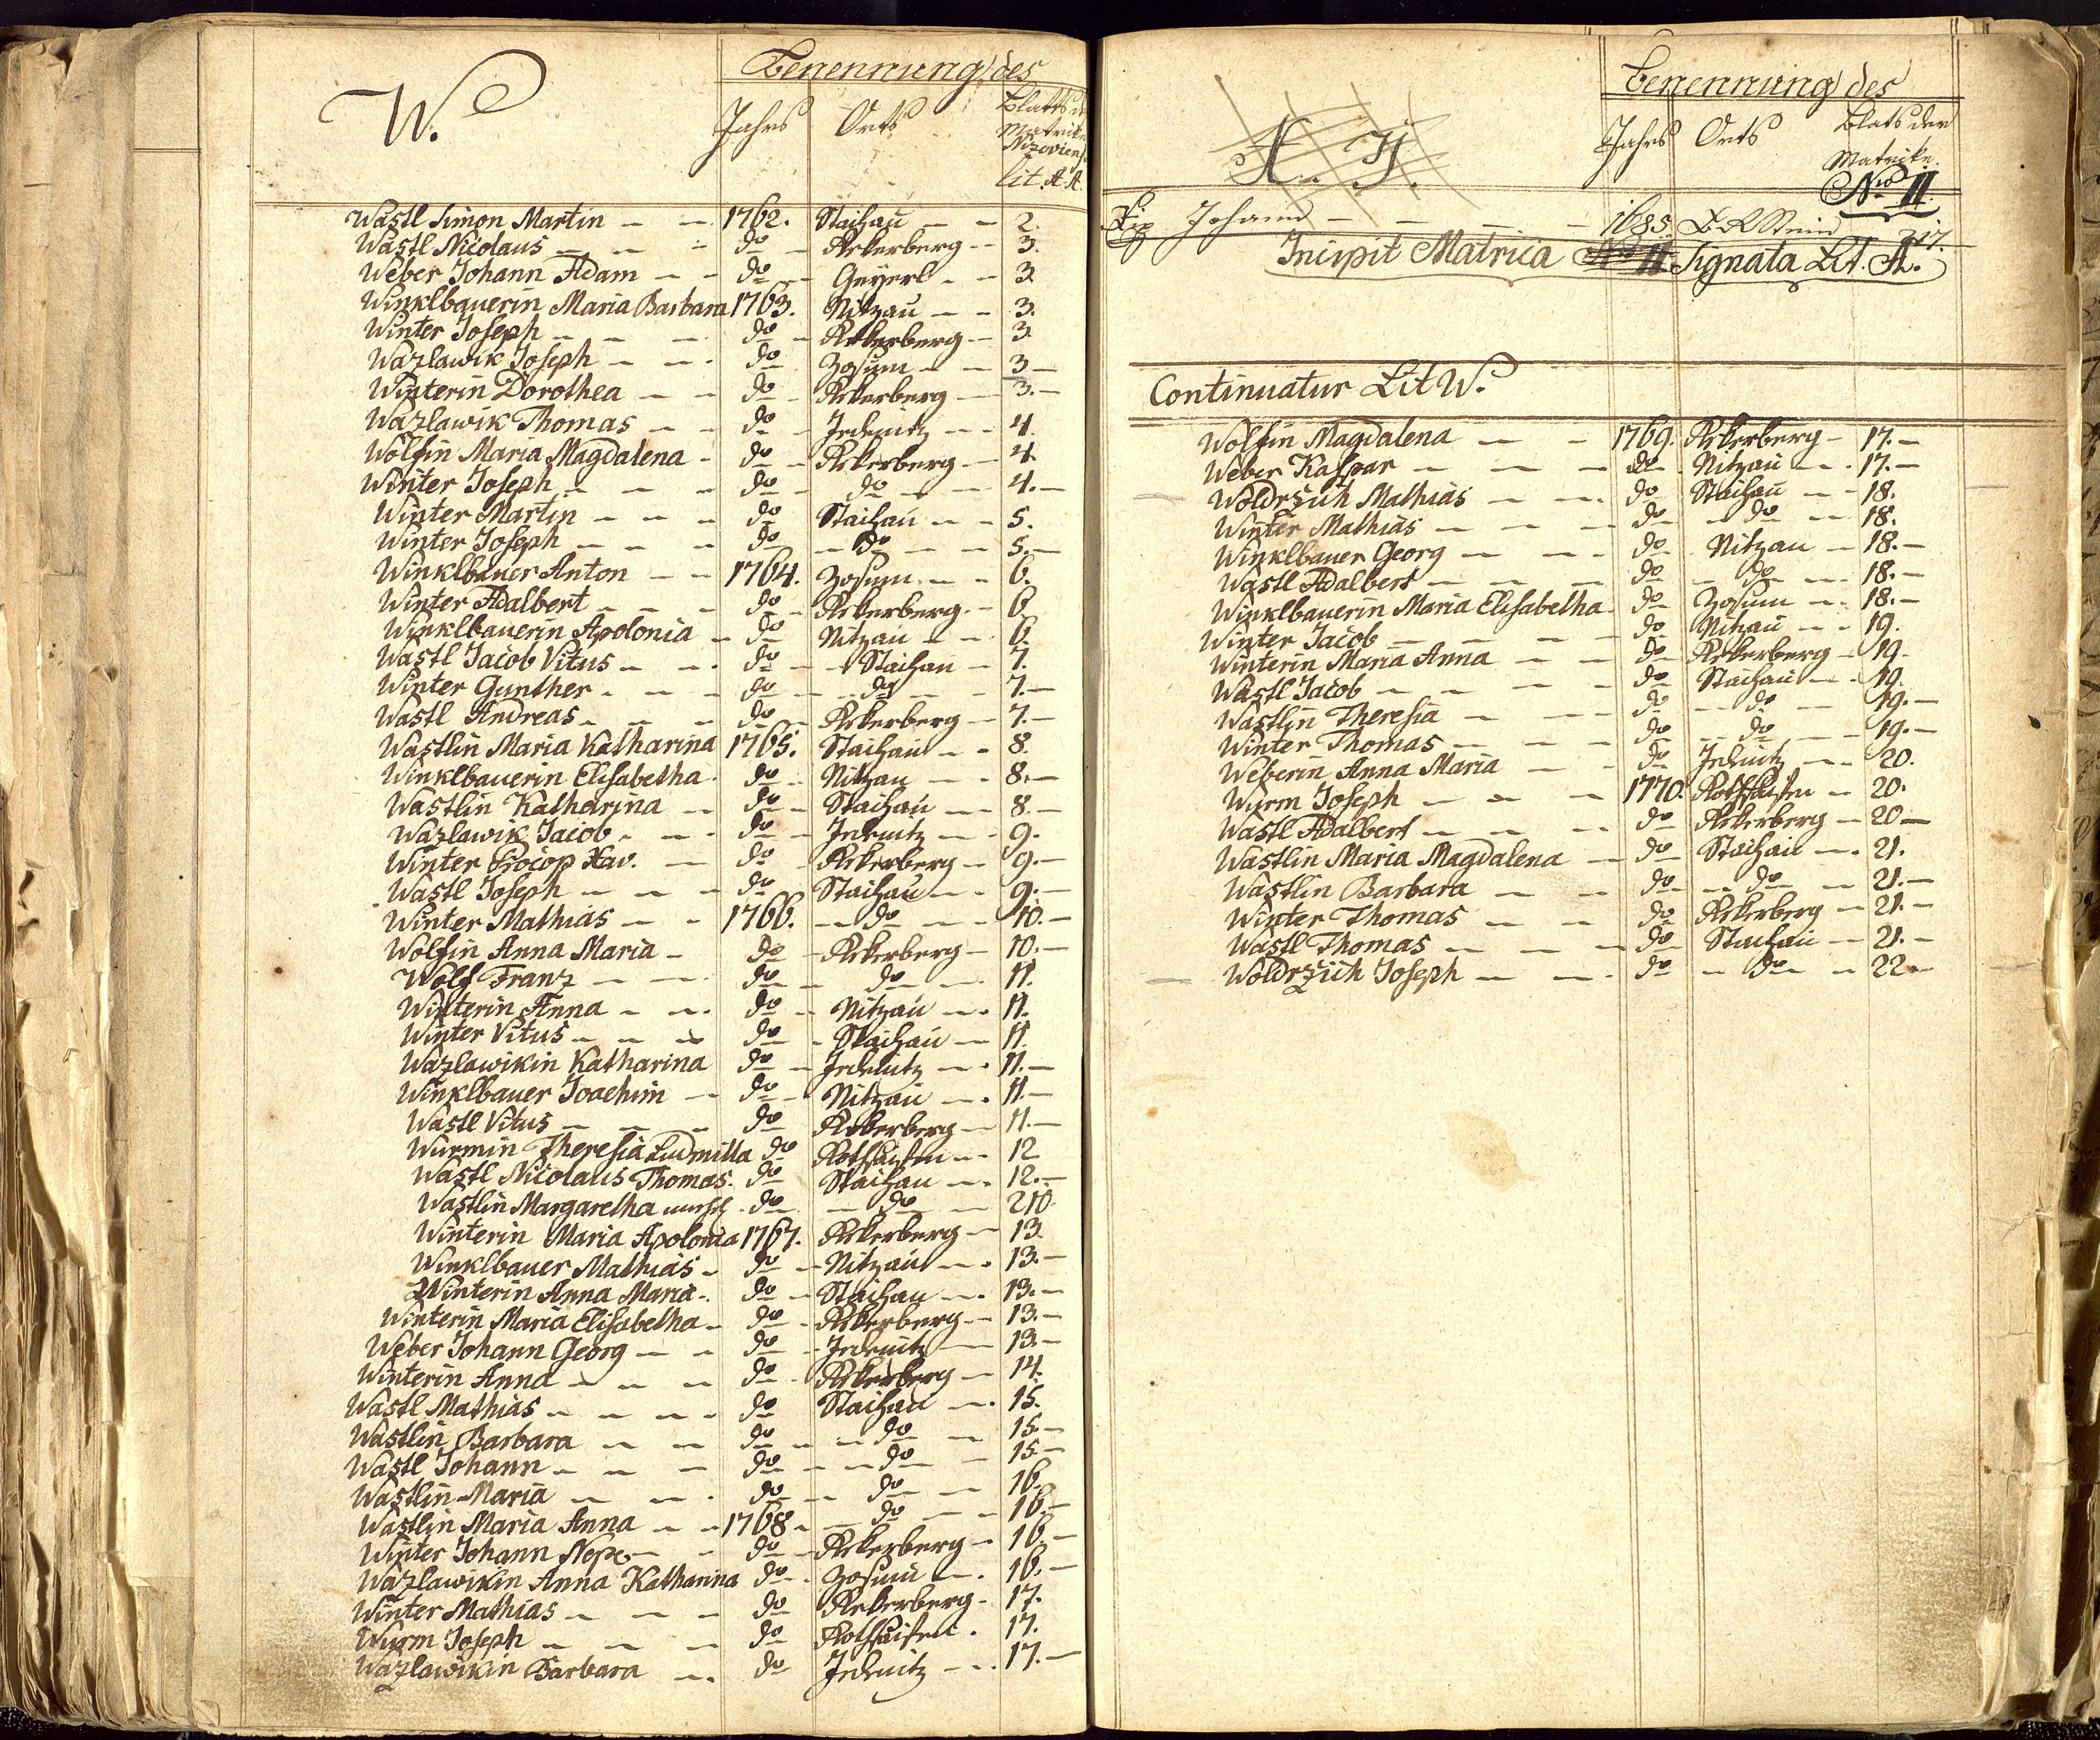 W.
Benennung des
Jahrs Orts Blatts der Matrike Nizoviens. lit. A. A.
Wastl Simon Martin 1762. Stachau 2.
Wastl Nicolaus do Ekerberg 3.
Weber Johann Adam do Geyerl 3.
Winklbauerin Maria Barbara 1763. Nitzau 3.
Winter Joseph do Ekerberg 3.
Wazlawik Joseph do Zosum 3
Winterin Dorothea do Ekerberg 3.
Wazlawik Thomas do Jedenitz 4.
Wolfin Maria Magdalena do Ekerberg 4.
Winter Joseph do do 4.
Winter Martin do Stachau 5.
Winter Joseph do do 5.
Winklbauer Anton 1764. Zosum 6.
Winter Adalbert do Ekerberg 6.
Winklbauerin Apolonia do Nitzau 6.
Wastl Jacob Vitus do Stachau 7.
Winter Gunther do do 7.
Wastl Andreas do Ekerberg 7.
Wastlin Maria Katharina 1765. Stachau 8.
Winklbauerin Elisabetha do Nitzau 8.
Wastlin Katharina do Stachau 8.
Wazlawik Jacob do Jedenitz 9.
Winter Procop Xav. do Ekerberg 9.
Wastl Joseph do Stachau 9.
Winter Mathias 1766. do 10.
Wolfin Anna Maria do Ekerberg 10.
Wolf Franz do do 11.
Winterin Anna do Nitzau 11.
Winter Vitus do Stachau 11.
Wazlawikin Katharina do Jedenitz 11.
Winklbauer Joachim do Nitzau 11.
Wastl Vitus do Ekerberg 11.
Wurmin Theresia Ludmilla do Rothsaifen 12
Wastl Nicolaus Thomas do Stachau 12.
Wastlin Margaretha do do 210.
Winterin Maria Apolonia 1767. Ekerberg 13.
Winklbauer Mathias do Nitzau 13.
Winterin Anna Maria do Stachau 13.
Winterin Maria Elisabetha do Ekerberg 13.
Weber Johann Georg do Jedenitz 13.
Winterin Anna do Ekerberg 14.
Wastl Mathias do Stachau 15.
Wastlin Barbara do do 15.
Wastl Johann do do 15.
Wastlin Maria do do 16.
Wastlin Maria Anna 1768 do 16.
Winter Johann Nepo. do Ekerberg 16.
Wazlawikin Anna Katharina do Zosum 16.
Winter Mathias do Ekerberg 17.
Wurm Joseph do Rothsaifen 17.
Wazlawikin Barbara do Jedenitz 17.
X. Y.
Benennung des
Jahrs Orts Blats der Matrike. Nro II.
Johann 1685. 217.
Incipit Matrica Nro II Signata Lit. A.
Continuatur Lit W.
Wolfin Magdalena 1769. Ekerberg 17.
Weber Kaspar do Nitzau 17.
Woldrzich Mathias do Stachau 18.
Winter Mathias do do 18.
Winklbauer Georg do Nitzau 18.
Wastl Adalbert do do 18.
Winklbauerin Maria Elisabetha do Zosum 18.
Winter Jacob do Nitzau 19.
Winterin Maria Anna do Ekerberg 19.
Wastl Jacob do Stachau 19.
Wastlin Theresia do do 19.
Winter Thomas do do 19.
Weberin Anna Maria do Jedenitz 20.
Wurm Joseph 1770. Rothsaifen 20.
Wastl Adalbert do Ekerberg 20
Wastlin Maria Magdalena do Stachau 21.
Wastlin Barbara do do 21.
Winter Thomas do Ekerberg 21.
Wastl Thomas do Stachau 21.
Woldrzich Joseph do do 22